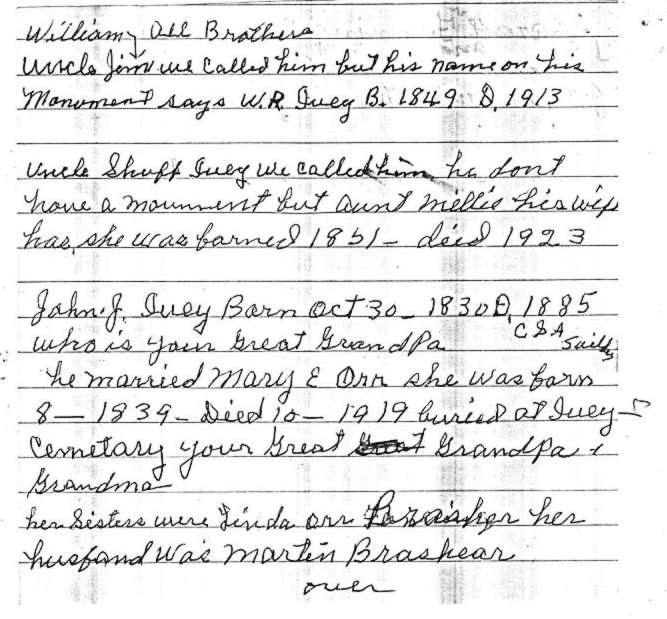 Williamy all Brothers
Uncle Jim we Called him but his name on his
Monument says W.R. Ivey B. 1849 D. 1913
Uncle Shuff Ivey we called him he dont
have a mounment but aunt Millie his wife
has, she was borned 1851 - died 1923
John. J. Ivey Born Oct 30 - 1830 D. 1885
who is your Great GrandPa C S A
he married Mary E Orr she was born
8 - 1839 - Died 10 - 1919 buried at Ivey
Cemetary your Great Grandpa &
Grandma
her Sisters were Linda Orr her
husband was Martin Brashear
over